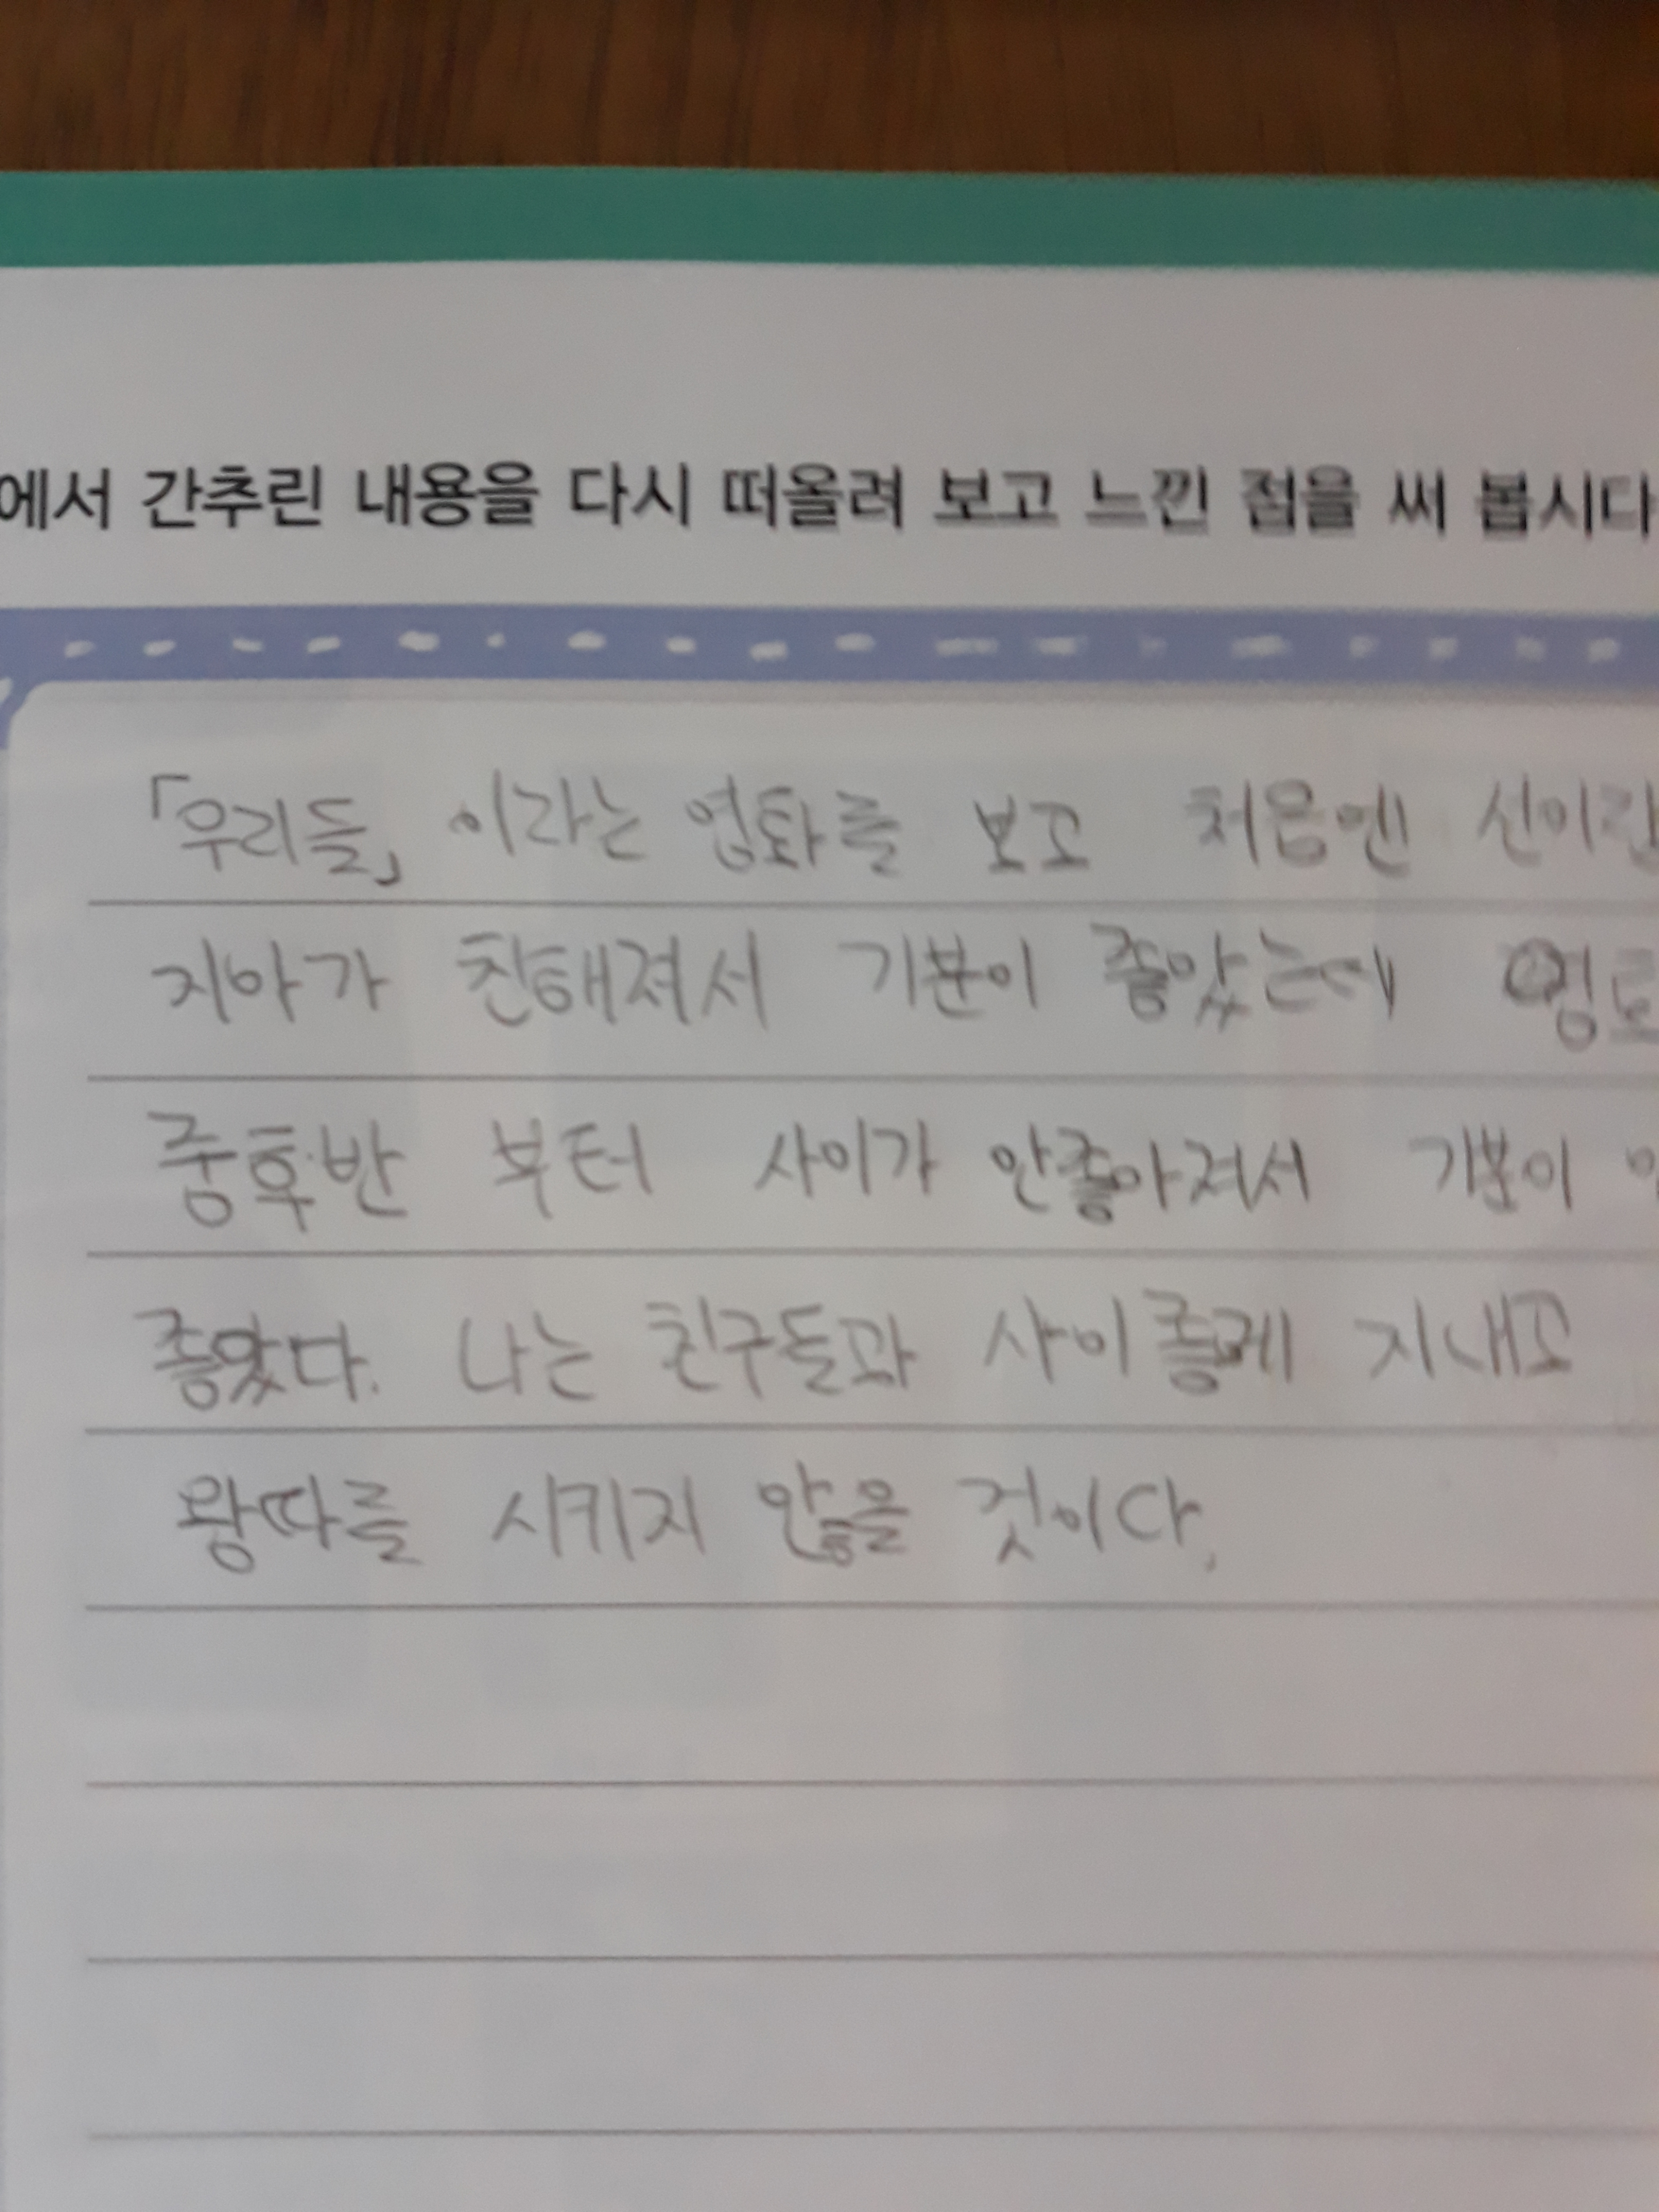 에서 간추린 내용을 다시 떠올려 보고 느낀 점을 써 봅시다
「우리들」 이라는 영화를 보고 처음엔
지아가 친해져서 기분이 좋았는데
중후반 부터 사이가 안좋아져서 기분이
좋았다. 나는 친구들과 사이좋게 지내고
왕따를 시키지 않을 것이다.